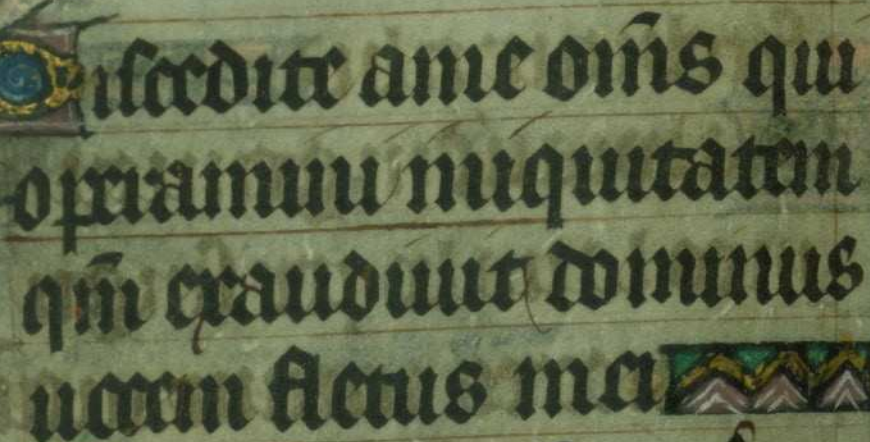 Discedite ame om̄s qui
operamini iniquitatem
qm̄ exaudiuit dominus
uocem fletus mei